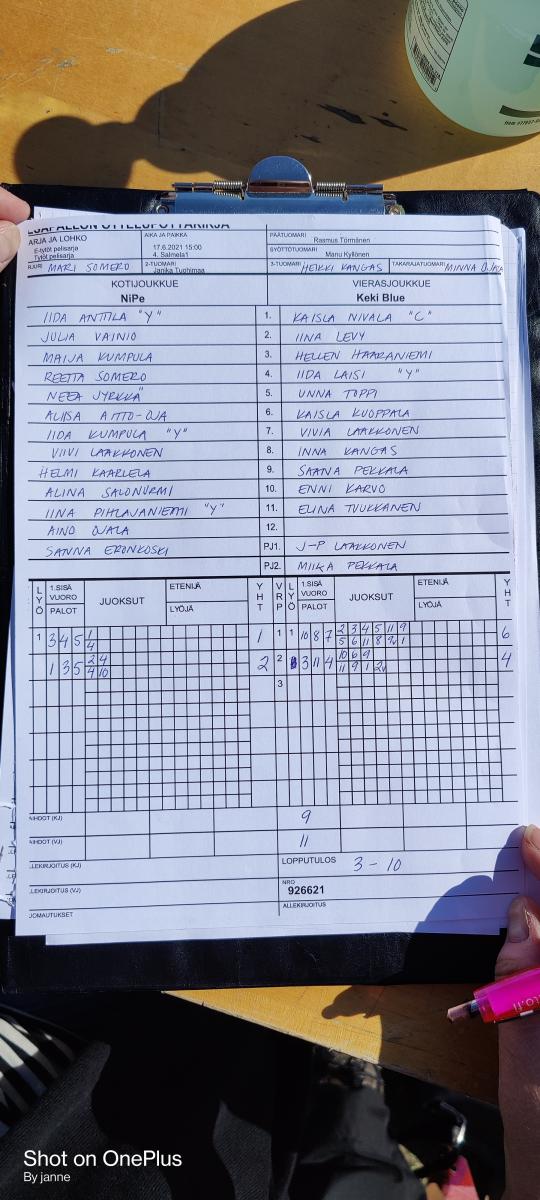 ARJA JA LOHKO
E-tytöt pelisarja
Tytöt pelisarja
AIKA JA PAIKKA
17.6.2021 15:00
4. Salmela1
PÄÄTUOMARI
Rasmus Törmänen
SYÖTTÖTUOMARI
Manu Kyllönen
MARI SOMERO
2-TUOMARI
Janika Tuohimaa
3-TUOMARI HEIKKI KANGAS
TAKARAJATUOMARI MINNA OJALA
KOTIJOUKKUE VIERASJOUKKUE
NiPe Keki Blue
IIDA ANTTILA "Y" 1. KAISLA NIVALA "C"
JULIA VAINIO 2. IINA LEVY
MAIJA KUMPULA 3. HELLEN HAARANIEMI
REETTA SOMERO 4. IIDA LAISI "Y"
NEEA JYRKKÄ 5. UNNA TOPPI
ALIISA AITTO-OJA 6. KAISLA KUOPPALA
IIDA KUMPULA "Y" 7. VIVIA LAAKKONEN
VIIVI LAAKKONEN 8. INNA KANGAS
HELMI KAARLELA 9. SAANA PEKKALA
ALINA SALONURMI 10. ENNI KARVO
IINA PIHLAJANIEMI "Y" 11. ELINA TUUKKANEN
AINO OJALA 12.
SANNA ERONKOSKI PJ1. J-P LAAKKONEN
PJ2. MIIKA PEKKALA
LYÖ 1.SISÄ VUORO PALOT JUOKSUT ETENIJÄ LYÖJÄ YHT VRP LYÖ 1.SISÄ VUORO PALOT JUOKSUT ETENIJÄ LYÖJÄ YHT
1 3 4 5 1 1 1 1 10 8 7 2 3 4 5 11 9 6
4 5 6 11 8 9 1
1 3 5 2 4 2 2 3 11 4 10 6 9 4
4 10 11 9 1 2
3
9
11
LOPPUTULOS 3 - 10
NRO
926621
ALLEKIRJOITUS
Shot on OnePlus
By janne